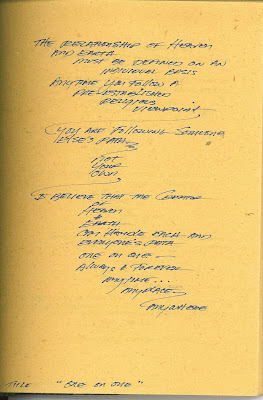 THE RELATIONSHIP OF HEAVEN
AND EARTH
MUST BE DEFINED ON AN
INDIVIDUAL BASIS
ANYTIME YOU FOLLOW A
PRE-ESTABLISHED
RELIGIOUS
VIEWPOINT,
YOU ARE FOLLOWING SOMEONE
ELSE'S PATH
NOT
YOUR
OWN,
I BELIEVE THAT THE CREATOR
OF
HEAVEN
&
EARTH
CAN HANDLE EACH AND
EVERYONE'S PATH
ONE ON ONE —
ALWAYS & FOREVER
ANYTIME...
ANYPLACE,
ANYWHERE
TITLE "ONE ON ONE"